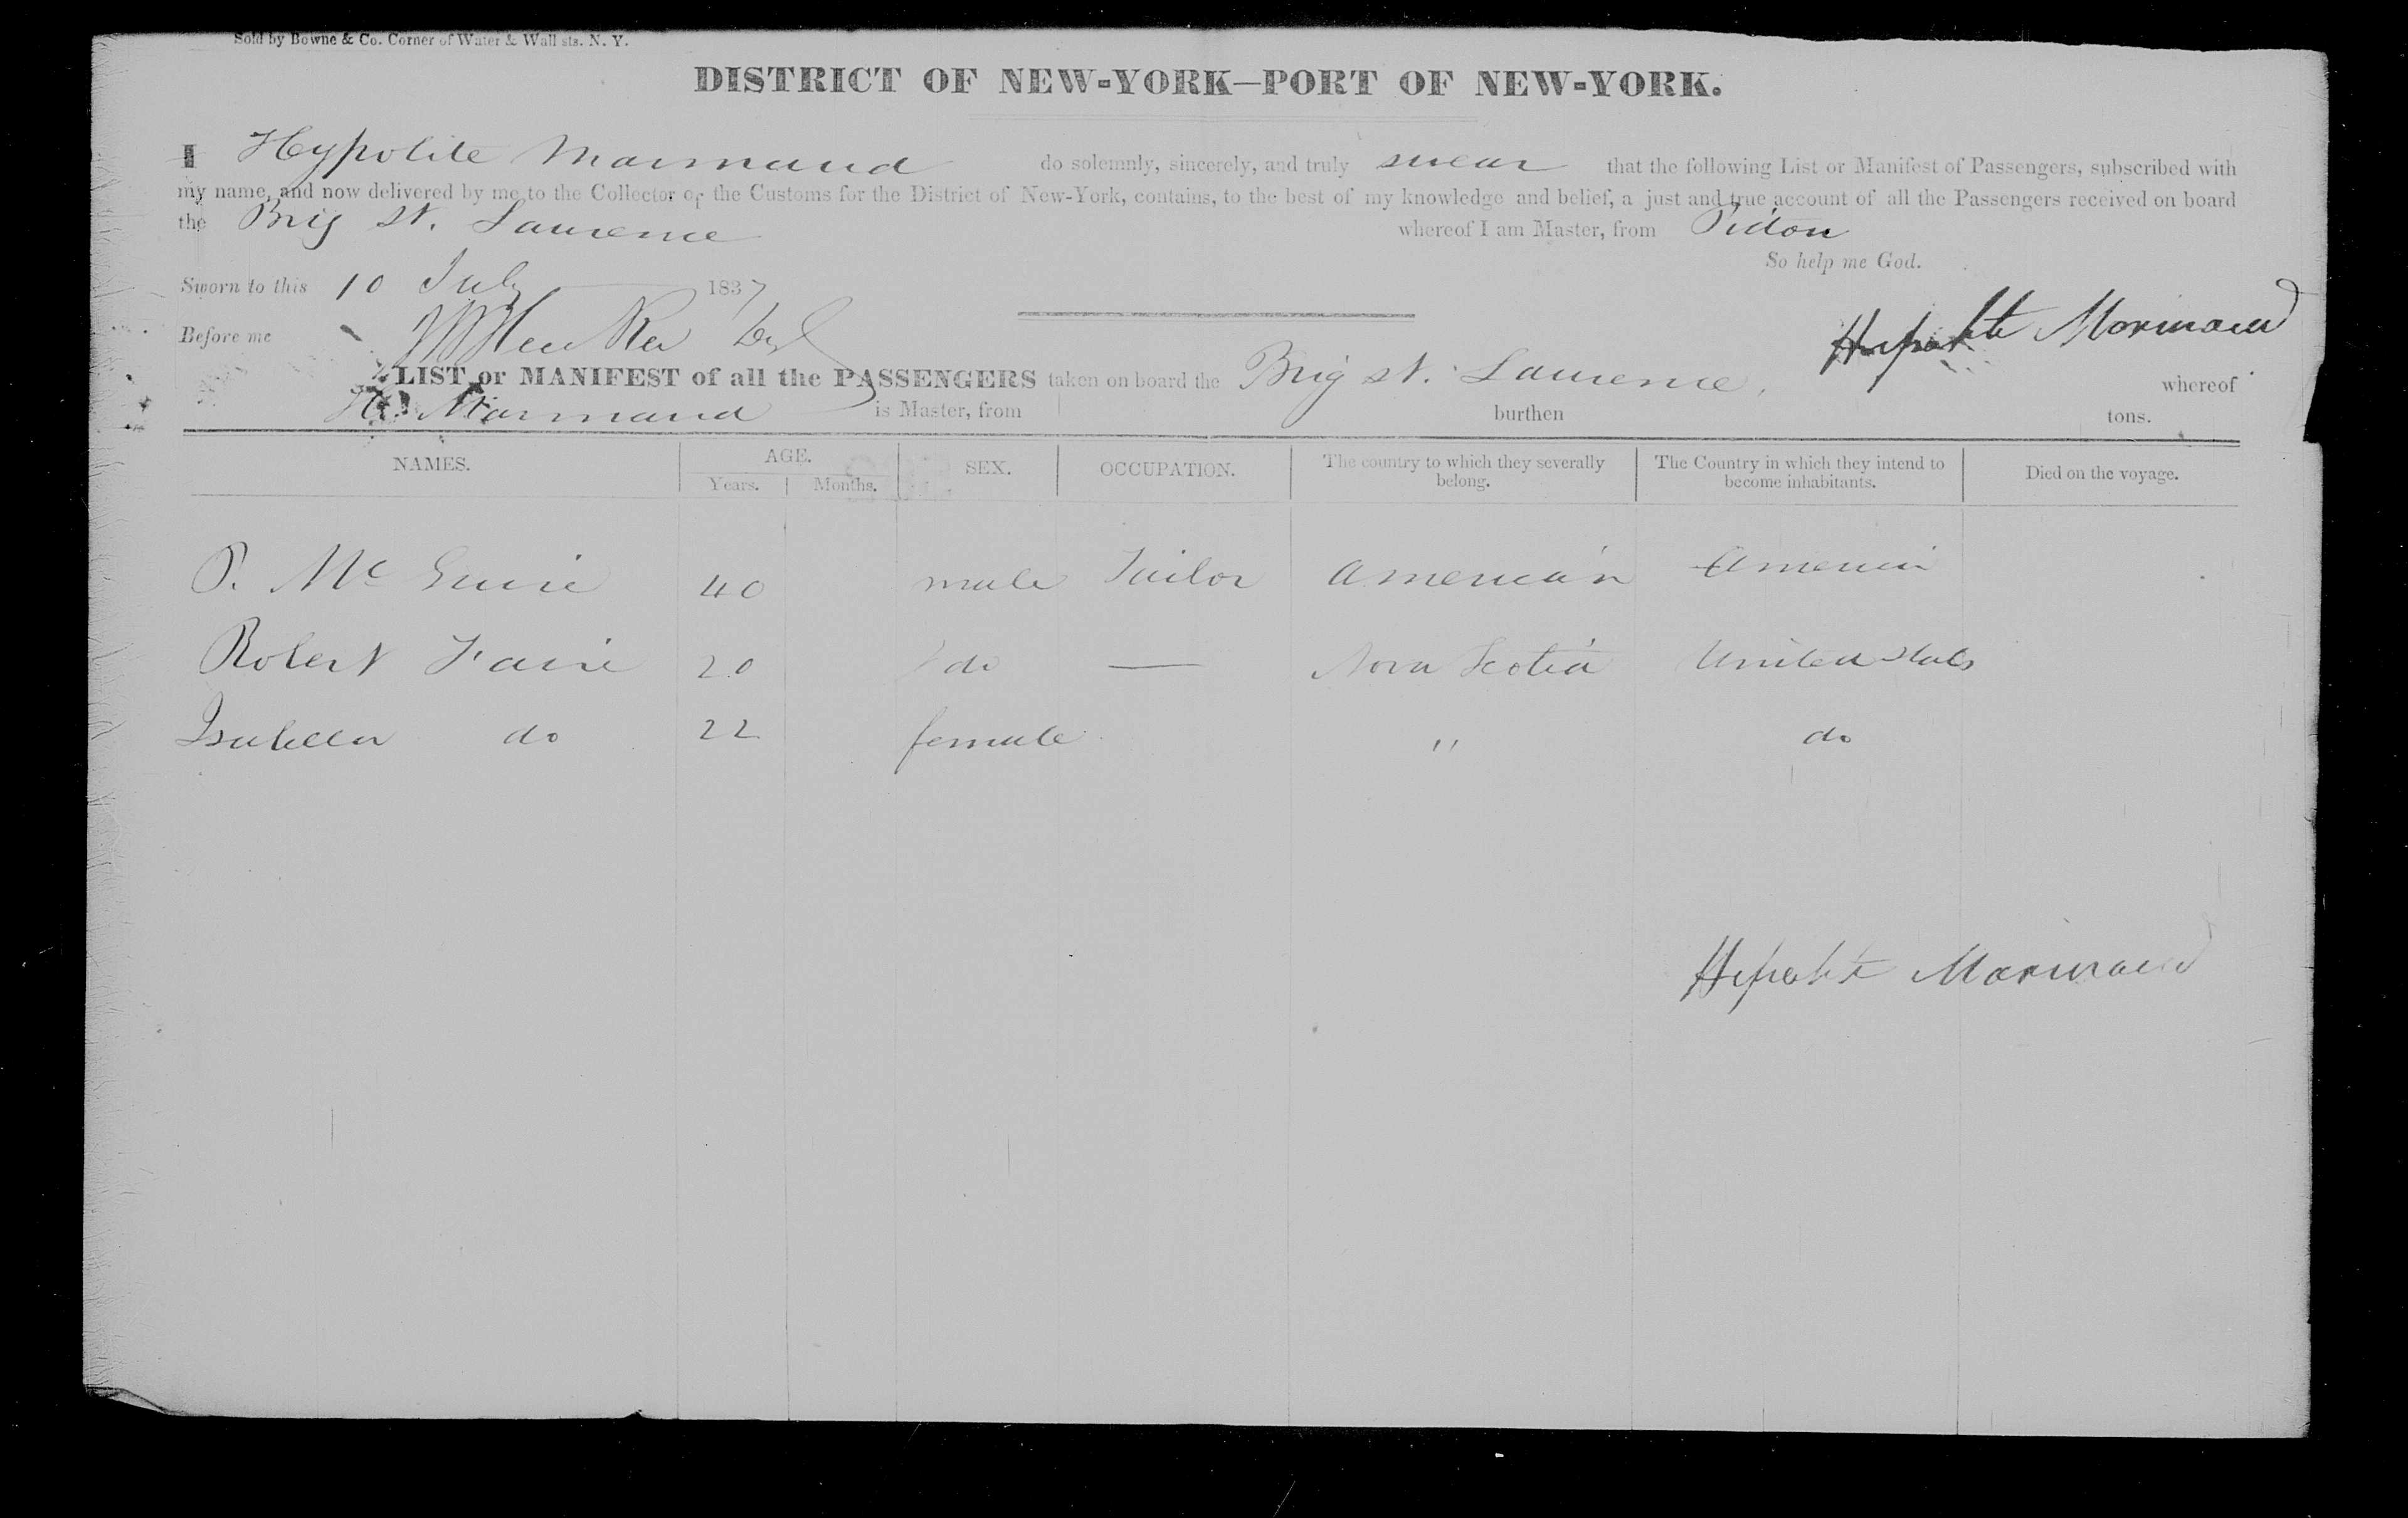 Sold by Bowne & Co. Corner of Water & Wall sts. N. Y.
DISTRICT OF NEW-YORK—PORT OF NEW-YORK.
I Hypolite Marmaud do solemnly, sincerely, and truly swear that the following List or Manifest of Passengers, subscribed with
my name, and now delivered by me to the Collector of the Customs for the District of New-York, contains, to the best of my knowledge and belief, a just and true account of all the Passengers received on board
the Brig St. Laurence whereof I am Master, from Pidou
So help me God.
Sworn to this 10 July 1837
Before me
Marmaud
LIST or MANIFEST of all the PASSENGERS taken on board the Brig St. Laurence, whereof
H. Marmaud is Master, from burthen tons.
NAMES. AGE. SEX. OCCUPATION. The country to which they severally belong. The Country in which they intend to become inhabitants. Died on the voyage.
Years. Months.
P. Mc Guire 40 male Tailor American America
Robert Fairie 20 do — Nova Scotia United States
Isabella do 22 female " do
Marmaud